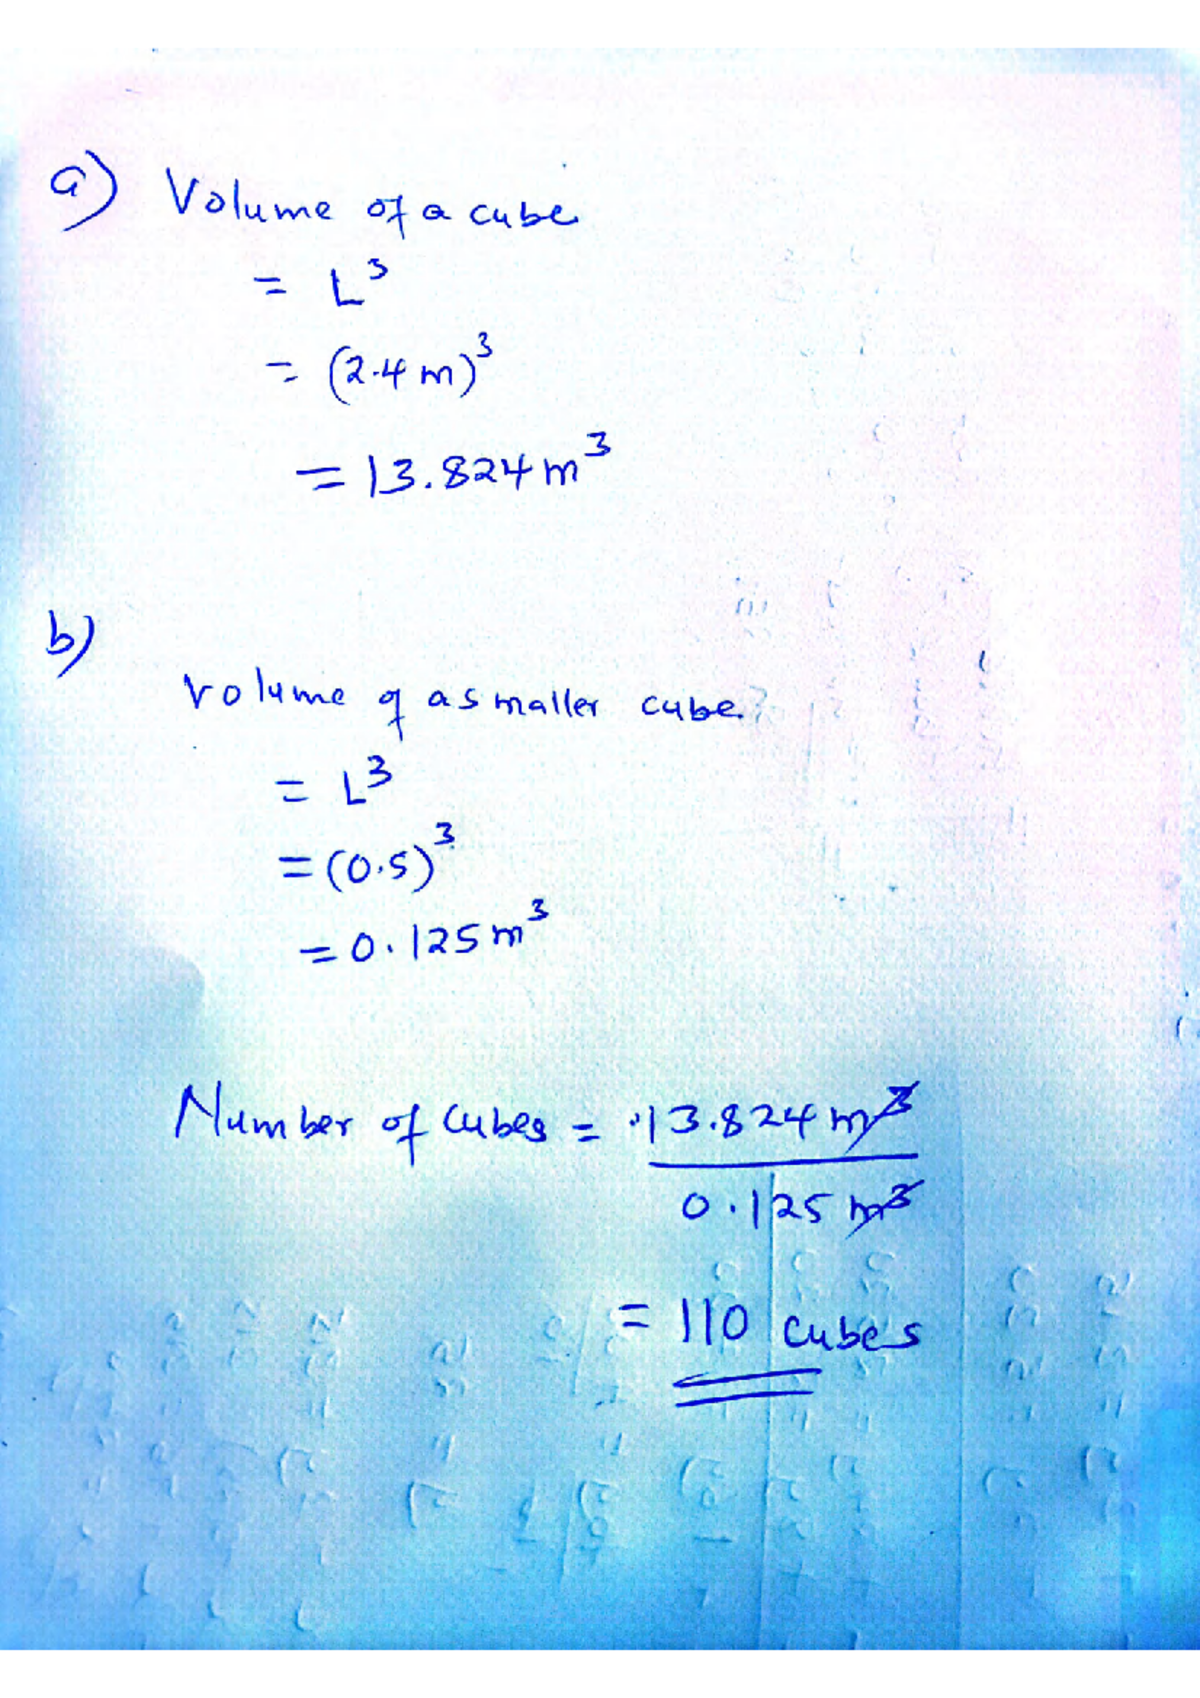 a) Volume of a cube
= L³
= (2.4 m)³
= 13.824 m³
b)
Volume of a smaller cube.
= L³
= (0.5)³
= 0.125 m³
Number of cubes = 13.824 m³
0.125 m³
= 110 cubes